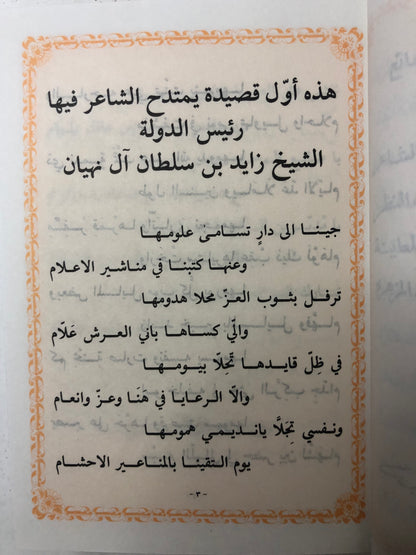 هذه أوّل قصيدة يمتدح الشاعر فيها
رئيس الدولة
الشيخ زايد بن سلطان آل نهيان
جينا الى دارٍ تسامى علومها
وعنها كتبنا في مناشير الاعلام
ترفل بثوب العزّ محلا هدومها
والّي كساها باني العرش علّام
في ظلّ قايدها تجّلا بيومها
والّا الرعايا في هَنَا وعزّ وانعام
ونفسي تجّلا يانديمي همومها
يوم التقينا بالمناعير الاحشام
-٣-